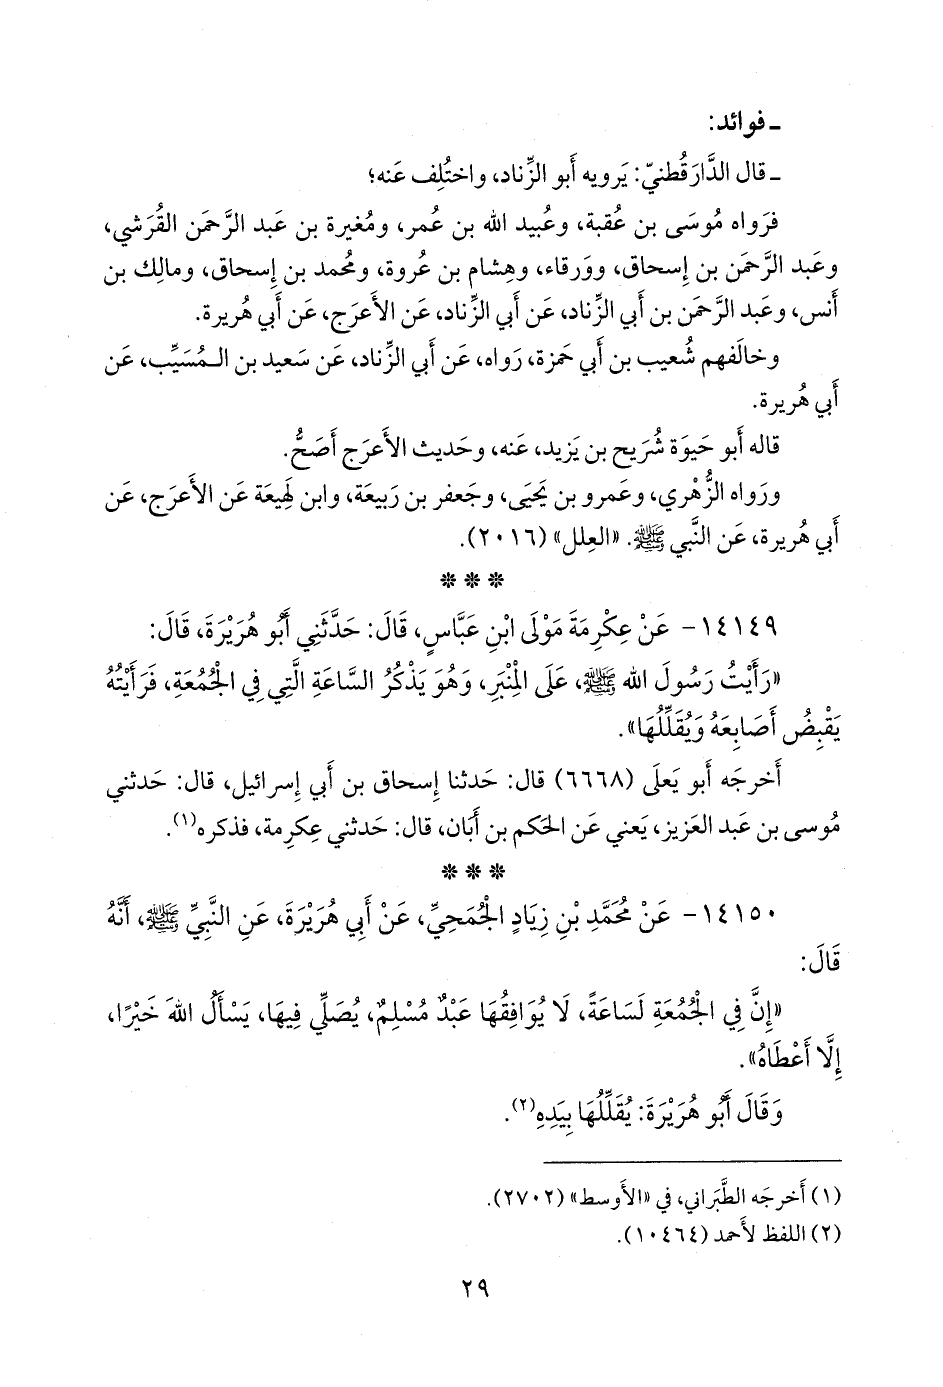 ـ فوائد:
ـ قال الدَّارَقُطنيّ: يَرويه أَبو الزِّناد، واختُلِف عَنه؛
فرَواه مُوسَى بن عُقبة، وعُبيد الله بن عُمر، ومُغيرة بن عَبد الرَّحمَن القُرَشي،
وعَبد الرَّحمَن بن إِسحاق، ووَرقاء، وهِشام بن عُروة، ومُحمد بن إِسحاق، ومالِك بن
أَنس، وعَبد الرَّحمَن بن أَبي الزِّناد، عَن أَبي الزِّناد، عَن الأَعرَج، عَن أَبي هُريرة.
وخالَفهم شُعيب بن أَبي حَمزة، رَواه، عَن أَبي الزِّناد، عَن سَعيد بن المُسَيِّب، عَن
أَبي هُريرة.
قاله أَبو حَيوَة شُرَيح بن يَزيد، عَنه، وحَديث الأَعرَج أَصَحُّ.
ورَواه الزُّهْري، وعَمرو بن يَحيَى، وجَعفر بن رَبيعَة، وابن لَهِيعَة عَن الأَعرَج، عَن
أَبي هُريرة، عَن النَّبي ﷺ. «العِلل» (٢٠١٦).
* * *
١٤١٤٩- عَنْ عِكْرِمَةَ مَوْلَى ابْنِ عَبَّاسٍ، قَالَ: حَدَّثَنِي أَبُو هُرَيْرَةَ، قَالَ:
«رَأَيْتُ رَسُولَ الله ﷺ، عَلَى الْمِنْبَرِ، وَهُوَ يَذْكُرُ السَّاعَةَ الَّتِي فِي الْجُمُعَةِ، فَرَأَيْتُهُ
يَقْبِضُ أَصَابِعَهُ وَيُقَلِّلُهَا».
أَخرجَه أَبو يَعلَى (٦٦٦٨) قال: حَدثنا إِسحاق بن أَبي إِسرائيل، قال: حَدثني
مُوسى بن عَبد العَزيز، يَعني عَن الحَكم بن أَبَان، قال: حَدثني عِكرِمة، فذكره(١).
* * *
١٤١٥٠- عَنْ مُحَمَّدِ بْنِ زِيَادٍ الْجُمَحِيِّ، عَنْ أَبِي هُرَيْرَةَ، عَنِ النَّبِيِّ ﷺ، أَنَّهُ
قَالَ:
«إِنَّ فِي الْجُمُعَةِ لَسَاعَةً، لَا يُوَافِقُهَا عَبْدٌ مُسْلِمٌ، يُصَلِّي فِيهَا، يَسْأَلُ اللهَ خَيْرًا،
إِلَّا أَعْطَاهُ».
وَقَالَ أَبُو هُرَيْرَةَ: يُقَلِّلُهَا بِيَدِهِ(٢).
(١) أَخرجَه الطَّبَراني، في «الأَوسط» (٢٧٠٢).
(٢) اللفظ لأَحمد (١٠٤٦٤).
٢٩